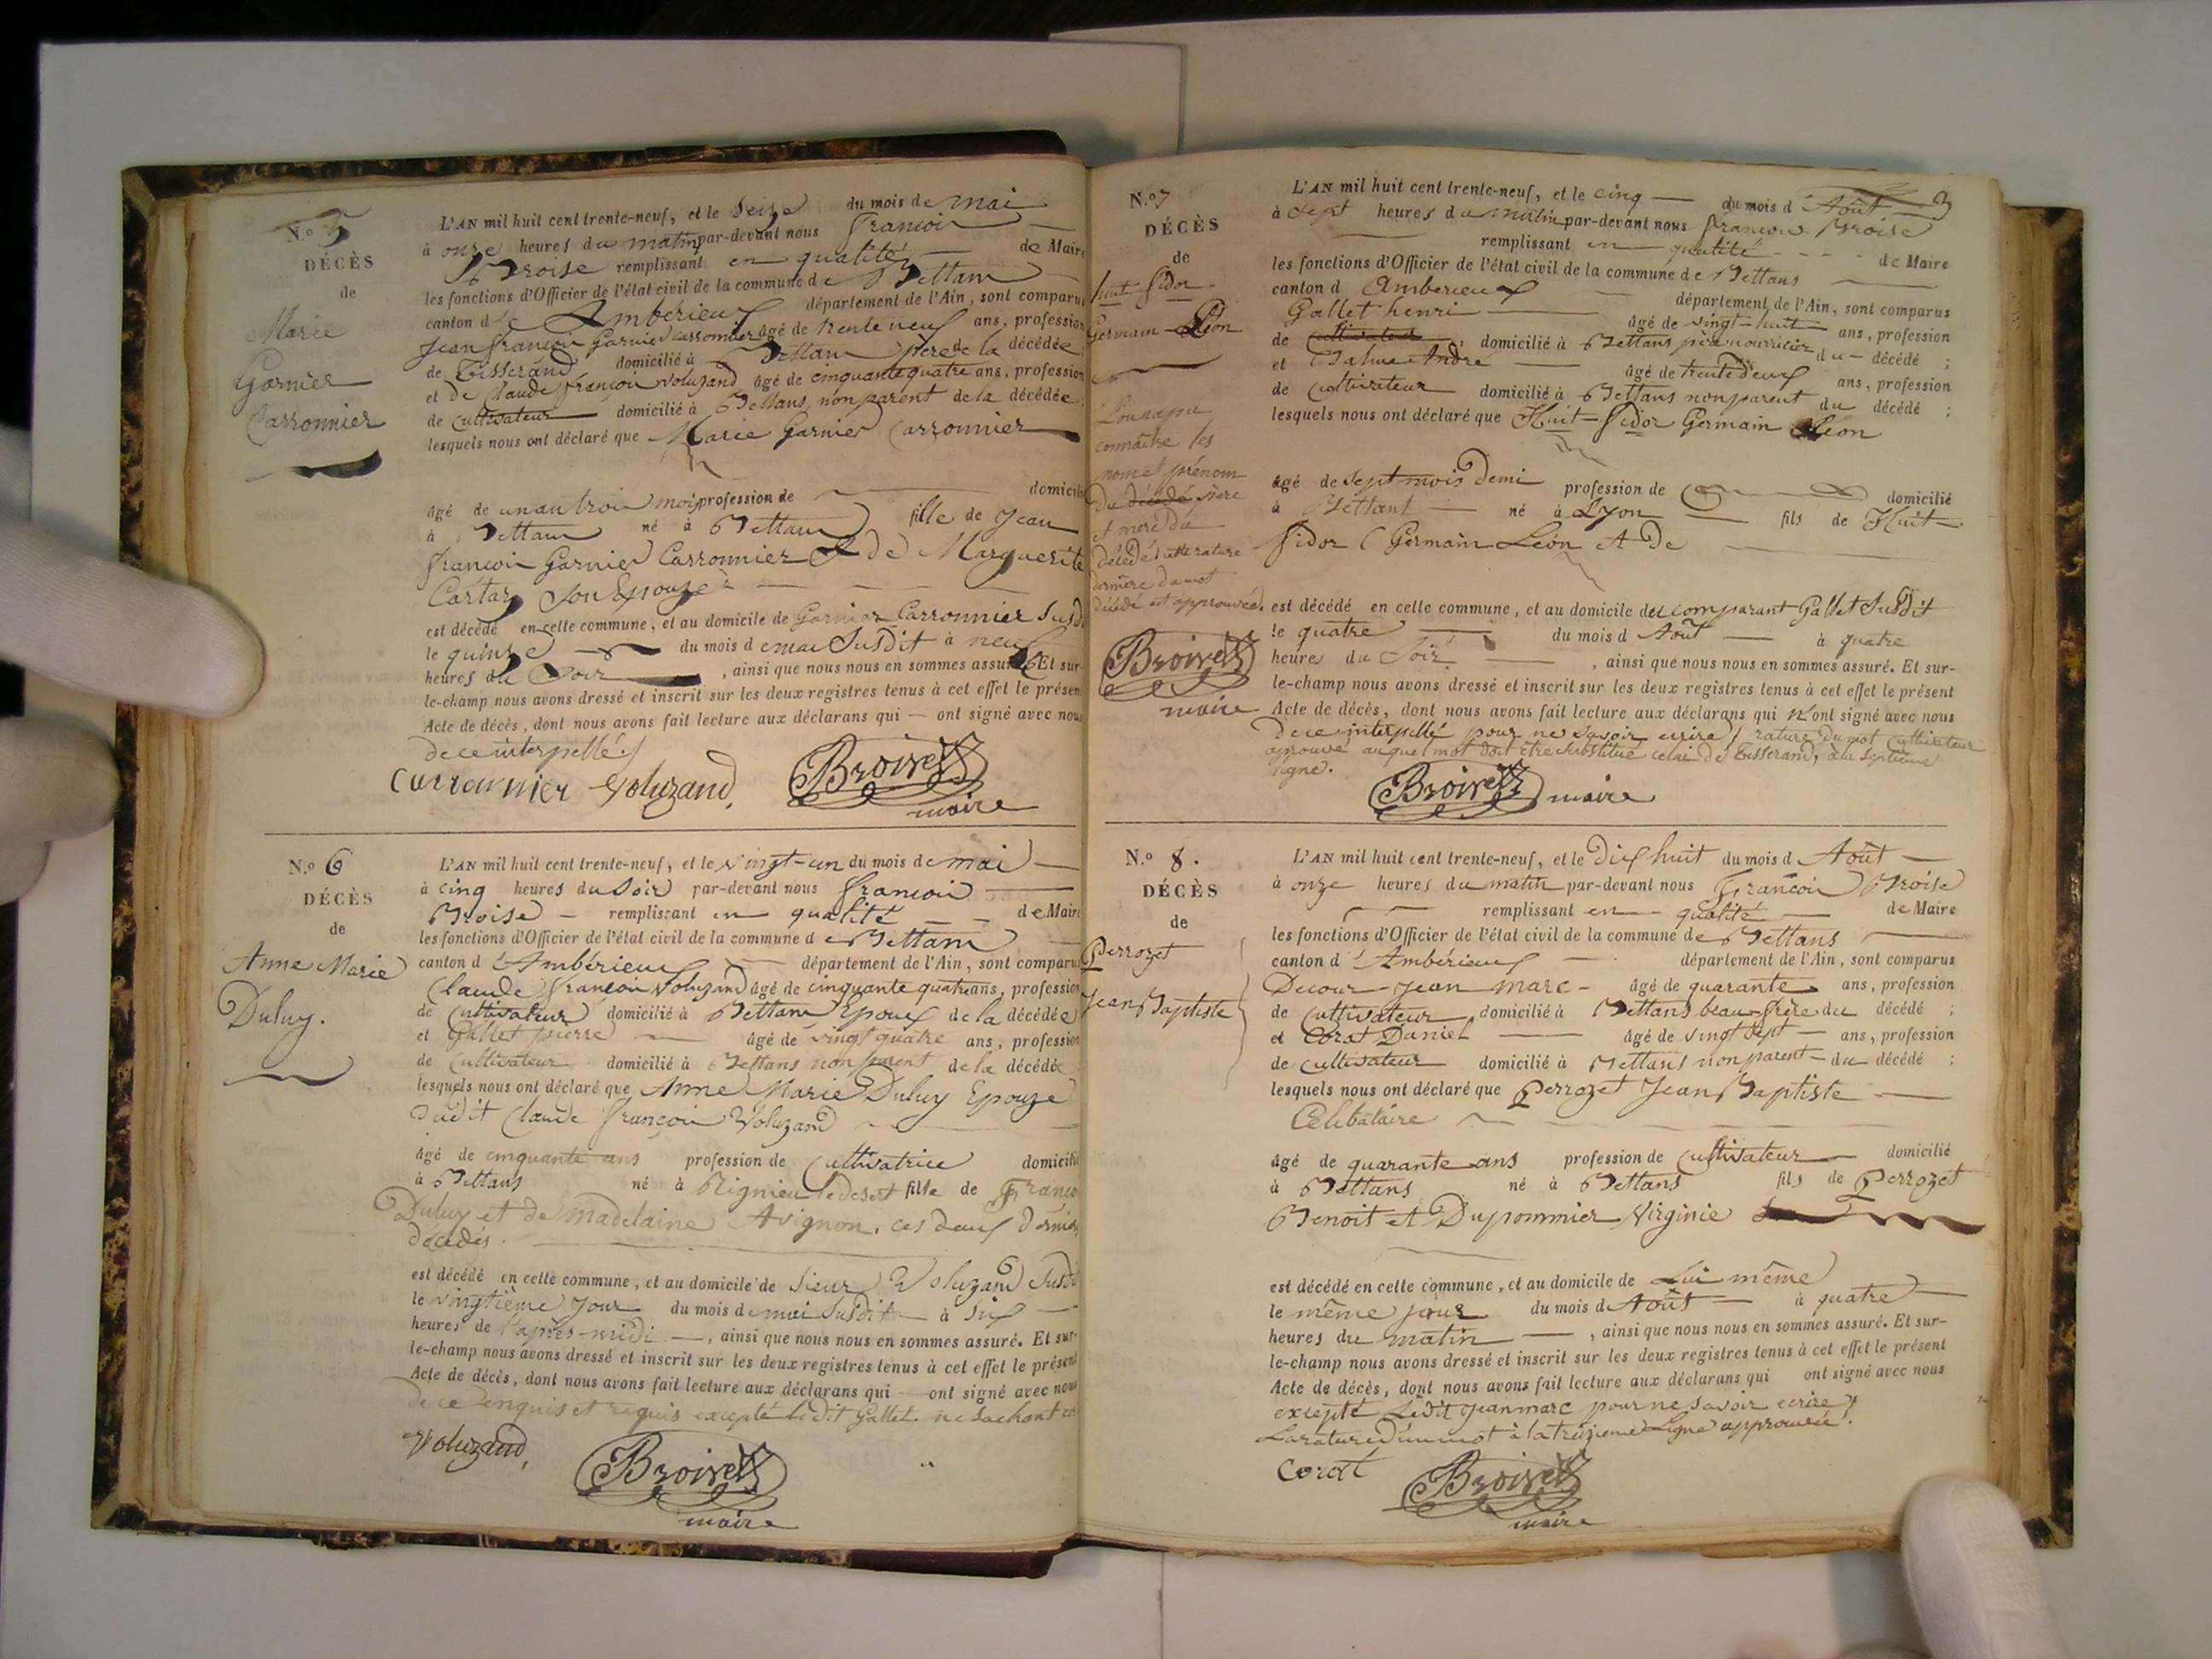 N.o 5
DÉCÈS
de
Marie
Garnier
Carronnier
L'AN mil huit cent trente-neuf, et le Seize du mois de mai
à onze heures du matin par-devant nous françois
Broise remplissant en qualité de Maire
les fonctions d'Officier de l'état civil de la commune de Bettans
canton d'Ambérieux département de l'Ain, sont comparus
Jean françois Garnier Carronnier âgé de trente neuf ans, profession
de Tisserand domicilié à Bettans père de la décédée
et de Claude françois Voluzand âgé de cinquante quatre ans, profession
de Cultivateur domicilié à Bettans, non parent de la décédée;
lesquels nous ont déclaré que Marie Garnier Carronnier
âgé de un an trois mois profession de domicilié
à Bettans né à Bettans fille de Jean
françois Garnier Carronnier & de Marguerite
Cartas Son Epouze
est décédé en cette commune, et au domicile de Garnier Carronnier Susdit
le quinze du mois de mai Susdit à neuf
heures du Soir, ainsi que nous nous en sommes assuré. Et sur-
le-champ nous avons dressé et inscrit sur les deux registres tenus à cet effet le présent
Acte de décès, dont nous avons fait lecture aux déclarans qui — ont signé avec nous
de ce interpellé./
Carronnier Voluzand, Broise
maire
N.o 6
DÉCÈS
de
Anne Marie
Duluy.
L'AN mil huit cent trente-neuf, et le vingt-un du mois de mai
à cinq heures du Soir par-devant nous françois
Broise — remplissant en qualité de Maire
les fonctions d'Officier de l'état civil de la commune de Bettans
canton d'Ambérieux département de l'Ain, sont comparus
Claude françois Voluzand âgé de cinquante quatre ans, profession
de Cultivateur domicilié à Bettans Epoux de la décédée
et Gallet pierre âgé de vingt quatre ans, profession
de Cultivateur domicilié à Bettans non parent de la décédée
lesquels nous ont déclaré que Anne Marie Duluy Epouze
dudit Claude françois Voluzand
âgé de cinquante ans profession de Cultivatrice domicilié
à Bettans né à Rignieu le desert fille de François
Duluy et de Madelaine Avignon, ces deux derniers
décédés.
est décédé en cette commune, et au domicile de Sieur Voluzand Susdit
le vingtième jour du mois de mai Susdit à Six
heures de l'après-midi —, ainsi que nous nous en sommes assuré. Et sur-
le-champ nous avons dressé et inscrit sur les deux registres tenus à cet effet le présent
Acte de décès, dont nous avons fait lecture aux déclarans qui — ont signé avec nous
de ce enquis et requis excepté ledit Gallet ne Sachant
Voluzand, Broise
maire
N.o 7
DÉCÈS
de
huit Sidor
Germain Léon
connaître les
nom et prénom
du décédé père
et mère du
décédé
dernière du mot
décédé est approuvée.
Broise
maire
3
L'AN mil huit cent trente-neuf, et le cinq — du mois d'Août
à Sept heures du matin par-devant nous françois Broise
remplissant en qualité de Maire
les fonctions d'Officier de l'état civil de la commune de Bettans
canton d'Ambérieux département de l'Ain, sont comparus
Gallet henri âgé de vingt-huit ans, profession
de cultivateur, domicilié à Bettans père nourricier du — décédé;
et Balme André âgé de trente deux ans, profession
de cultivateur domicilié à Bettans non parent du décédé;
lesquels nous ont déclaré que Huit-Sidor Germain Léon
âgé de Sept mois demi profession de domicilié
à Bettans né à Lyon fils de Huit-
Sidor Germain Léon et de
est décédé en cette commune, et au domicile du comparant Gallet Susdit
le quatre du mois d'Août à quatre
heures du Soir, ainsi que nous nous en sommes assuré. Et sur-
le-champ nous avons dressé et inscrit sur les deux registres tenus à cet effet le présent
Acte de décès, dont nous avons fait lecture aux déclarans qui n'ont signé avec nous
de ce interpellé pour ne Savoir écrire / rature du mot Cultivateur
aprouvé auquel mot doit être Substitué celui de Tisserand, à la Septième
ligne.
Broise maire
N.o 8.
DÉCÈS
de
Perrozet
Jean Baptiste
L'AN mil huit cent trente-neuf, et le Dix huit du mois d'Août
à onze heures du matin par-devant nous François Broise
remplissant en qualité de Maire
les fonctions d'Officier de l'état civil de la commune de Bettans
canton d'Ambérieux département de l'Ain, sont comparus
Decour Jean Marc — âgé de quarante ans, profession
de Cultivateur domicilié à Bettans beau-frère du décédé;
et Corat Daniel âgé de vingt Sept ans, profession
de Cultivateur domicilié à Bettans non parent du décédé:
lesquels nous ont déclaré que Perrozet Jean Baptiste
Célibataire
âgé de quarante ans profession de Cultivateur domicilié
à Bettans né à Bettans fils de Perrozet
Benoit et Dupommier Virginie
est décédé en cette commune, et au domicile de Lui même
le même jour du mois d'Août à quatre
heures du matin, ainsi que nous nous en sommes assuré. Et sur-
le-champ nous avons dressé et inscrit sur les deux registres tenus à cet effet le présent
Acte de décès, dont nous avons fait lecture aux déclarans qui ont signé avec nous
excepté Ledit Jean marc pour ne Savoir ecrire /
La rature d'un mot à la treizieme Ligne approuvée.
Corat Broise
maire